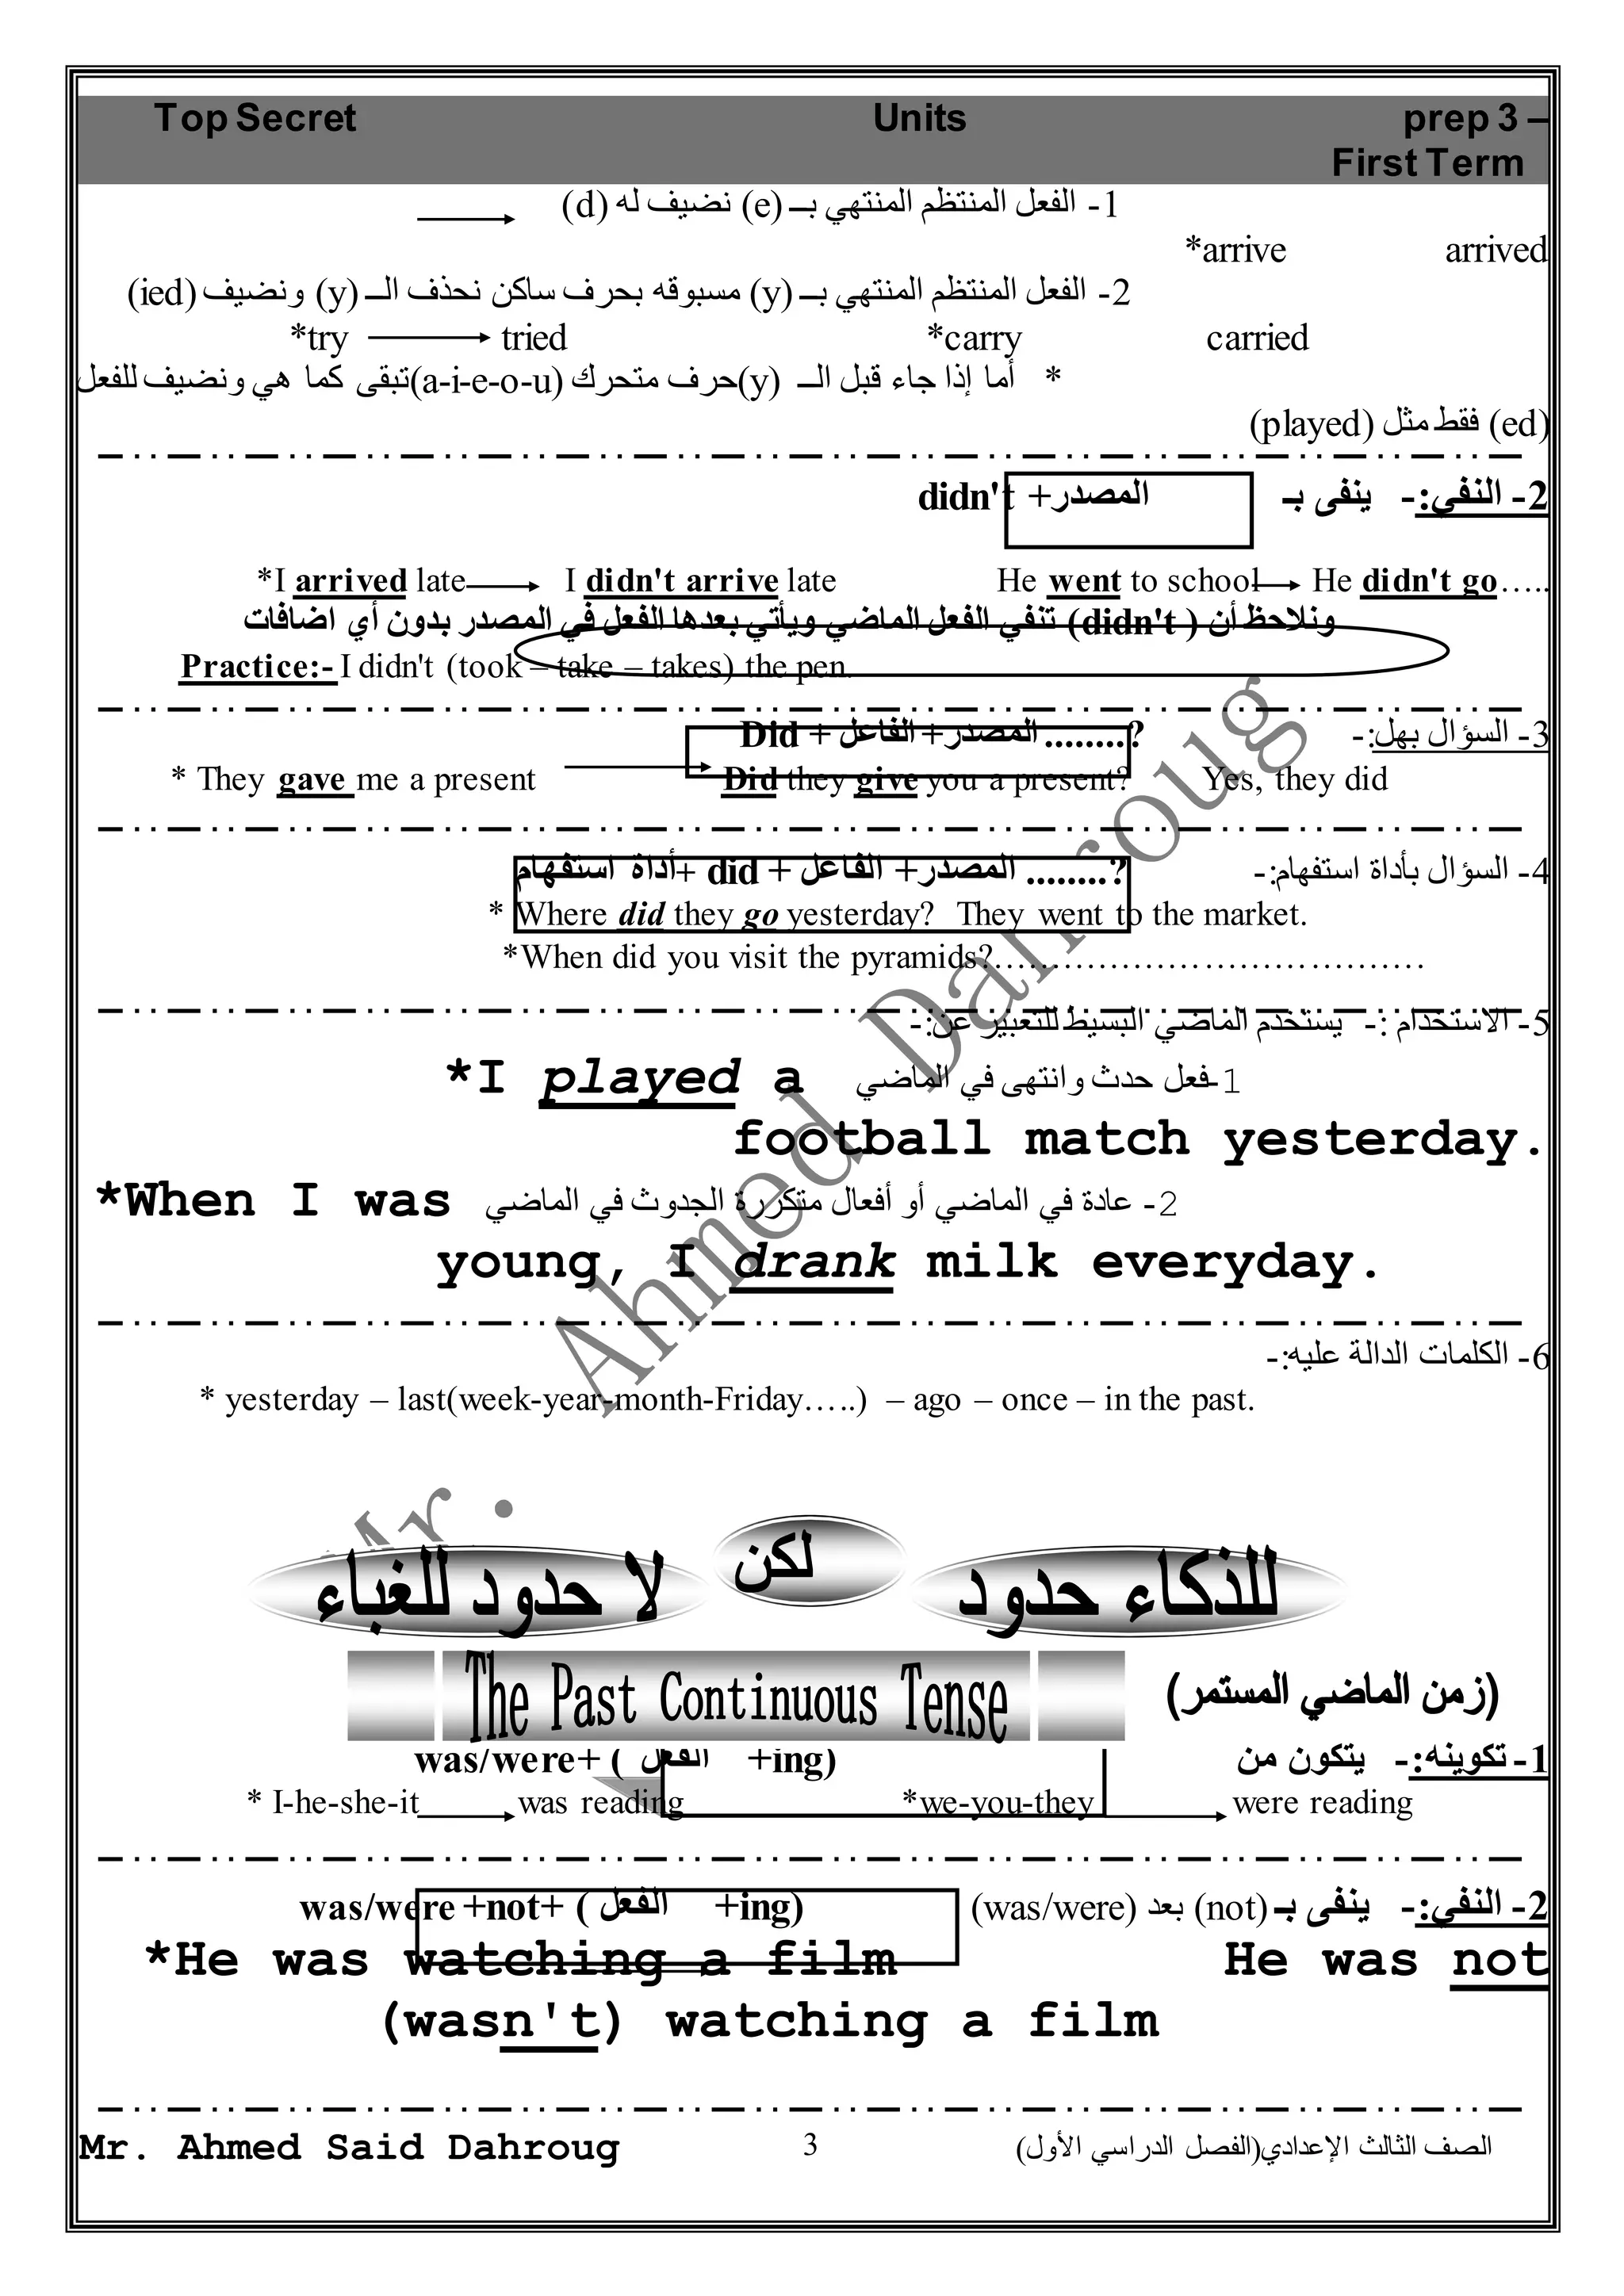 Top Secret Units prep 3 –
First Term
1- الفعل المنتظم المنتهي بــ (e) نضيف له (d)
*arrive arrived
2- الفعل المنتظم المنتهي بــ (y) مسبوقه بحرف ساكن نحذف الــ (y) ونضيف (ied)
*try tried *carry carried
* أما إذا جاء قبل الــ (y)حرف متحرك (a-i-e-o-u)تبقى كما هي ونضيف للفعل
(ed) فقط مثل (played)
2- النفي:- ينفى بـ didn't +المصدر
*I arrived late I didn't arrive late He went to school He didn't go…..
ونلاحظ أن ( didn't) تنفي الفعل الماضي ويأتي بعدها الفعل في المصدر بدون أي اضافات
Practice:- I didn't (took – take – takes) the pen.
3- السؤال بهل:- Did + الفاعل +المصدر ........?
* They gave me a present Did they give you a present? Yes, they did
4- السؤال بأداة استفهام:- أداة استفهام+ did + الفاعل +المصدر ........?
* Where did they go yesterday? They went to the market.
*When did you visit the pyramids?…………………………………
5- الاستخدام :- يستخدم الماضي البسيط للتعبير عن:-
1-فعل حدث وانتهى في الماضي *I played a
football match yesterday.
2- عادة في الماضي أو أفعال متكررة الجدوث في الماضي *When I was
young, I drank milk everyday.
6- الكلمات الدالة عليه:-
* yesterday – last(week-year-month-Friday…..) – ago – once – in the past.
للذكاء حدود لكن لا حدود للغباء
The Past Continuous Tense (زمن الماضي المستمر)
1- تكوينه:- يتكون من was/were+ ( الفعل +ing)
* I-he-she-it was reading *we-you-they were reading
2- النفي:- ينفى بـ (not) بعد (was/were) was/were +not+ ( الفعل +ing)
*He was watching a film He was not
(wasn't) watching a film
Mr. Ahmed Said Dahroug 3 الصف الثالث الإعدادي(الفصل الدراسي الأول)
Mr. Ahmed Dahroug